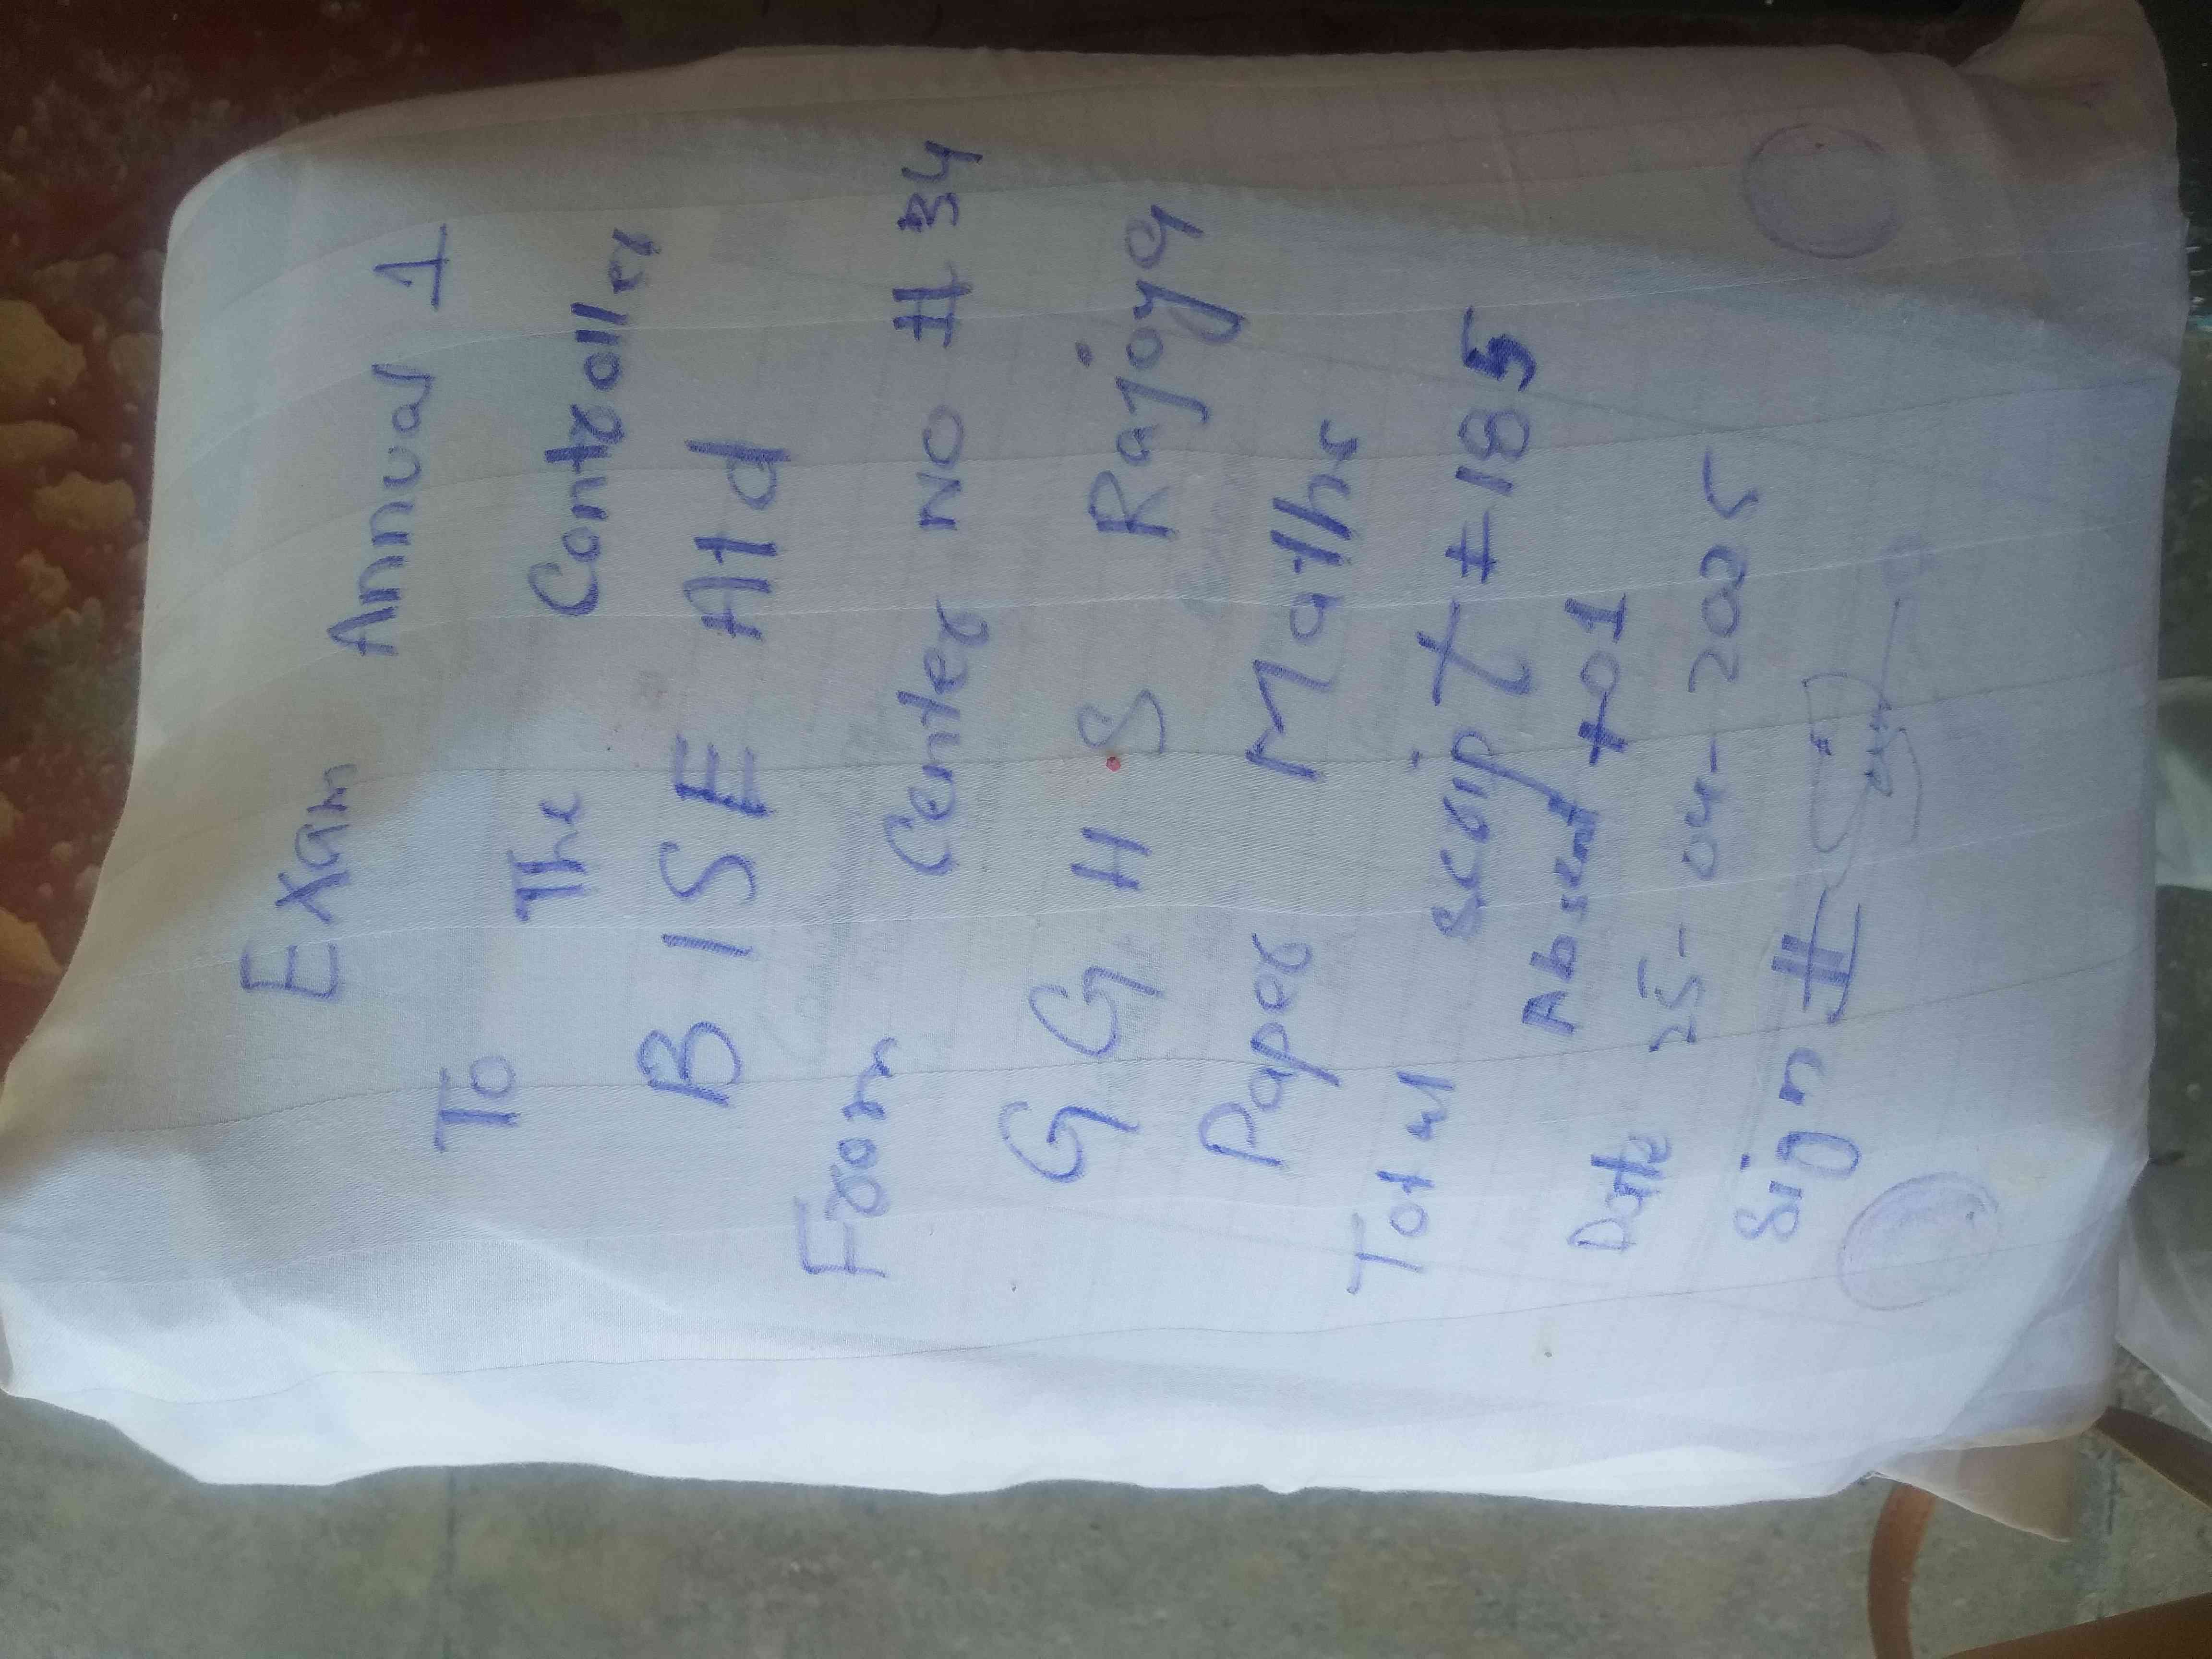 Exam Annual 1
To The Controller
BISE Atd
From Center No # 34
G G H S Rajoya
Paper Maths
Total script # 185
Absent # 01
Date 25-04-2025
Sign #